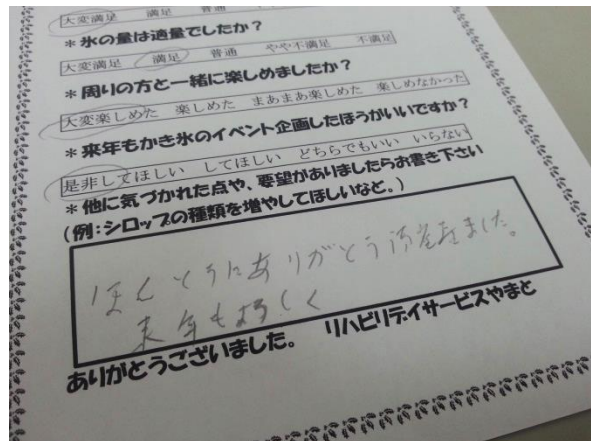 大変満足　満足　普通
＊氷の量は適量でしたか？
大変満足　満足　普通　やや不満足　不満足
＊周りの方と一緒に楽しめましたか？
大変楽しめた　楽しめた　まあまあ楽しめた　楽しめなかった
＊来年もかき氷のイベント企画したほうがいいですか？
是非してほしい　してほしい　どちらでもいい　いらない
＊他に気づかれた点や、要望がありましたらお書き下さい
（例：シロップの種類を増やしてほしいなど。）
ほんとうにありがとう御座ました。
来年も宜しく
ありがとうございました。　リハビリデイサービスやまと